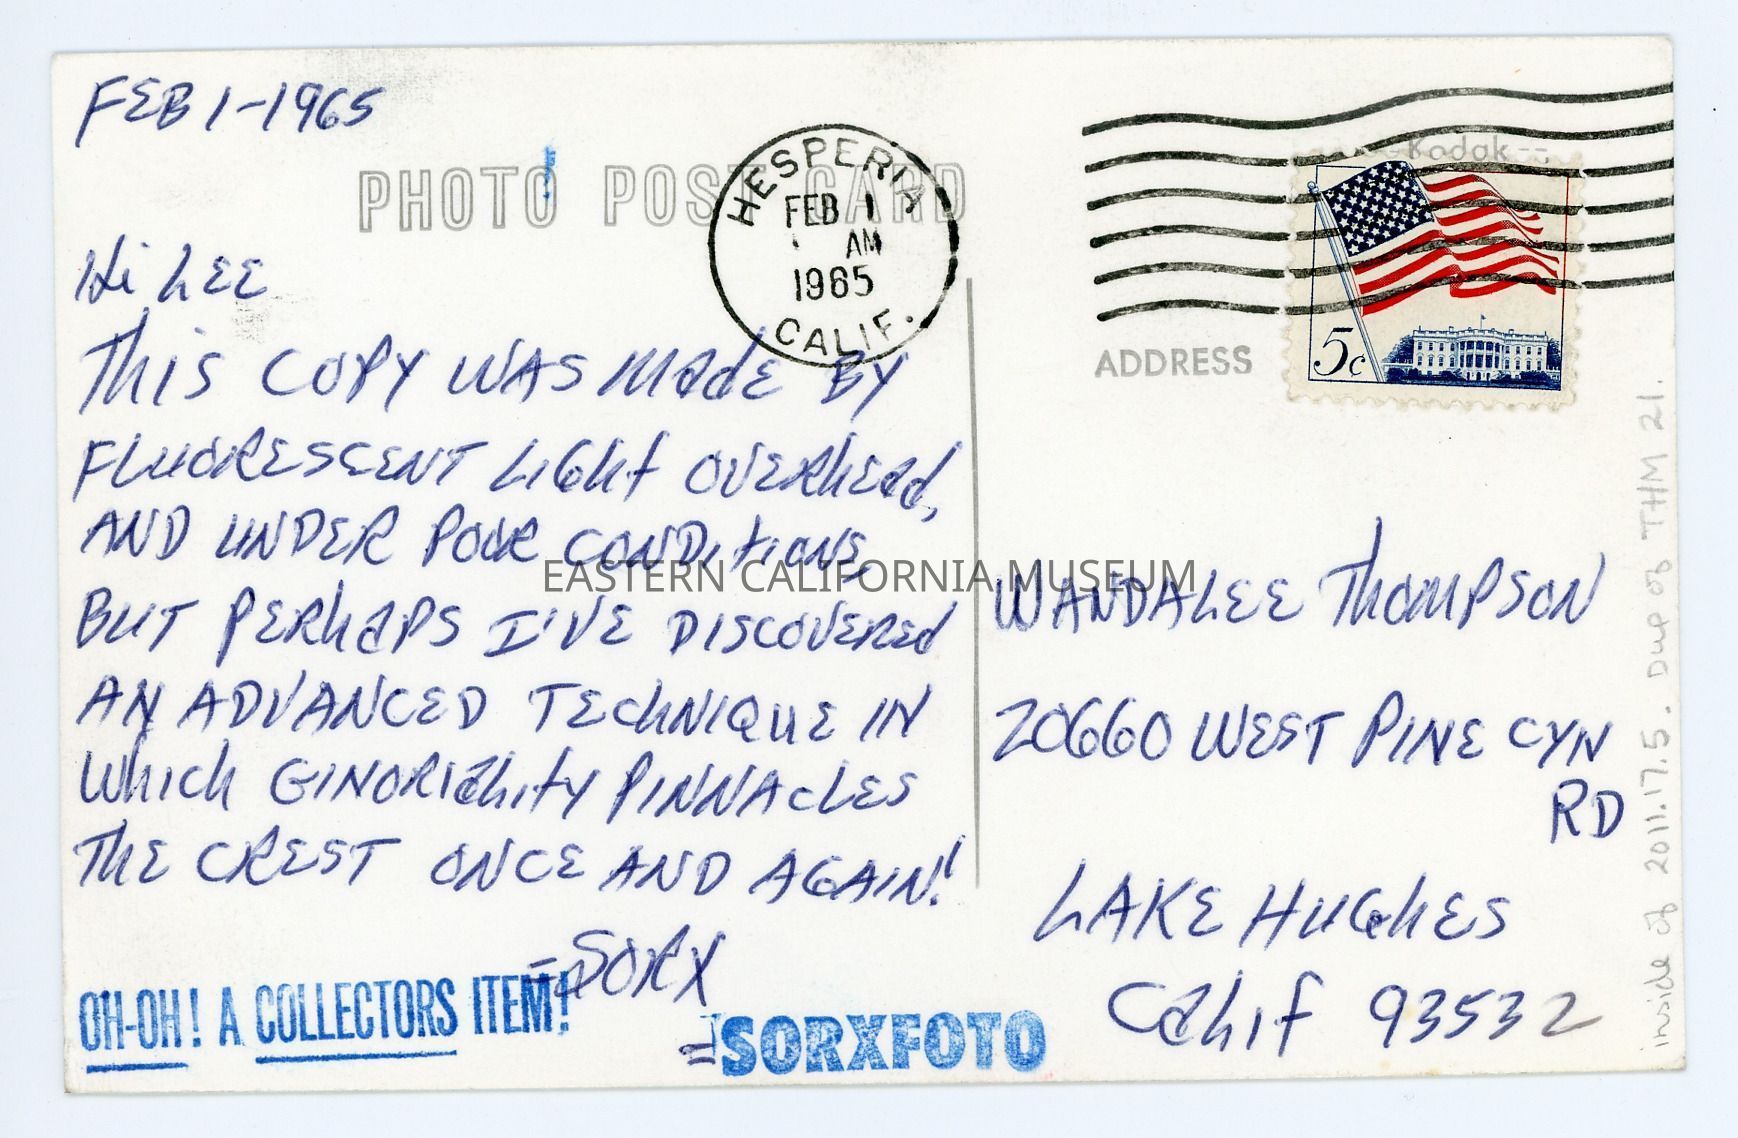 FEB 1-1965
PHOTO POST CARD
HESPERIA
FEB 1
AM
1965
CALIF.
Kodak
5c
ADDRESS
Hi LEE
This COPY WAS MadE BY
FLUORESCENT LIGHt OVERhEad,
AND UNDER POOR CONDItIONS,
BUT PERhaPS I'VE DISCOVEREd
AN ADVANCED TEChNIQUE IN
Which GINORICality PINNAcLES
ThE CREST ONCE AND AGAIN!
-SORX
EASTERN CALIFORNIA MUSEUM
WANDALEE ThOMPSON
20660 WEST PINE CYN
RD
LAKE HUGhES
Calif 93532
OH-OH! A COLLECTORS ITEM!
=SORXFOTO
inside of 2011.17.5. Due of THM 21.